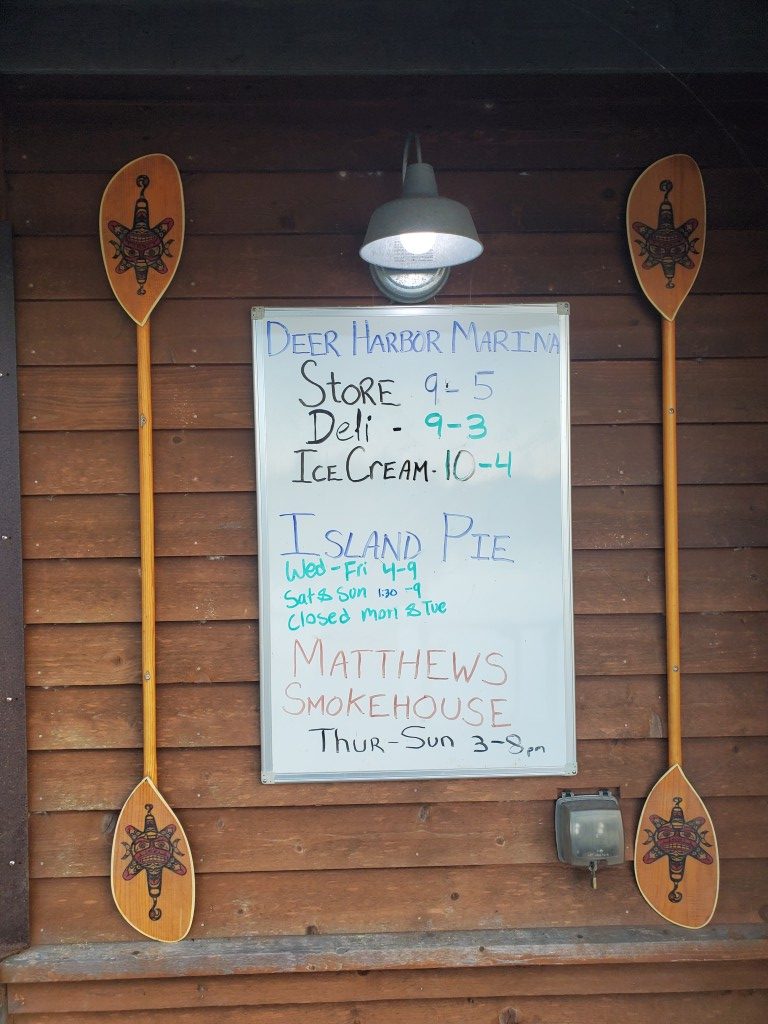 DEER HARBOR MARINA
STORE 9-5
Deli - 9-3
ICE CREAM. 10-4
ISLAND PIE
Wed-Fri 4-9
Sat & Sun 1:30-9
Closed Mon & Tue
MATTHEWS
SMOKEHOUSE
THUR-SUN 3-8pm